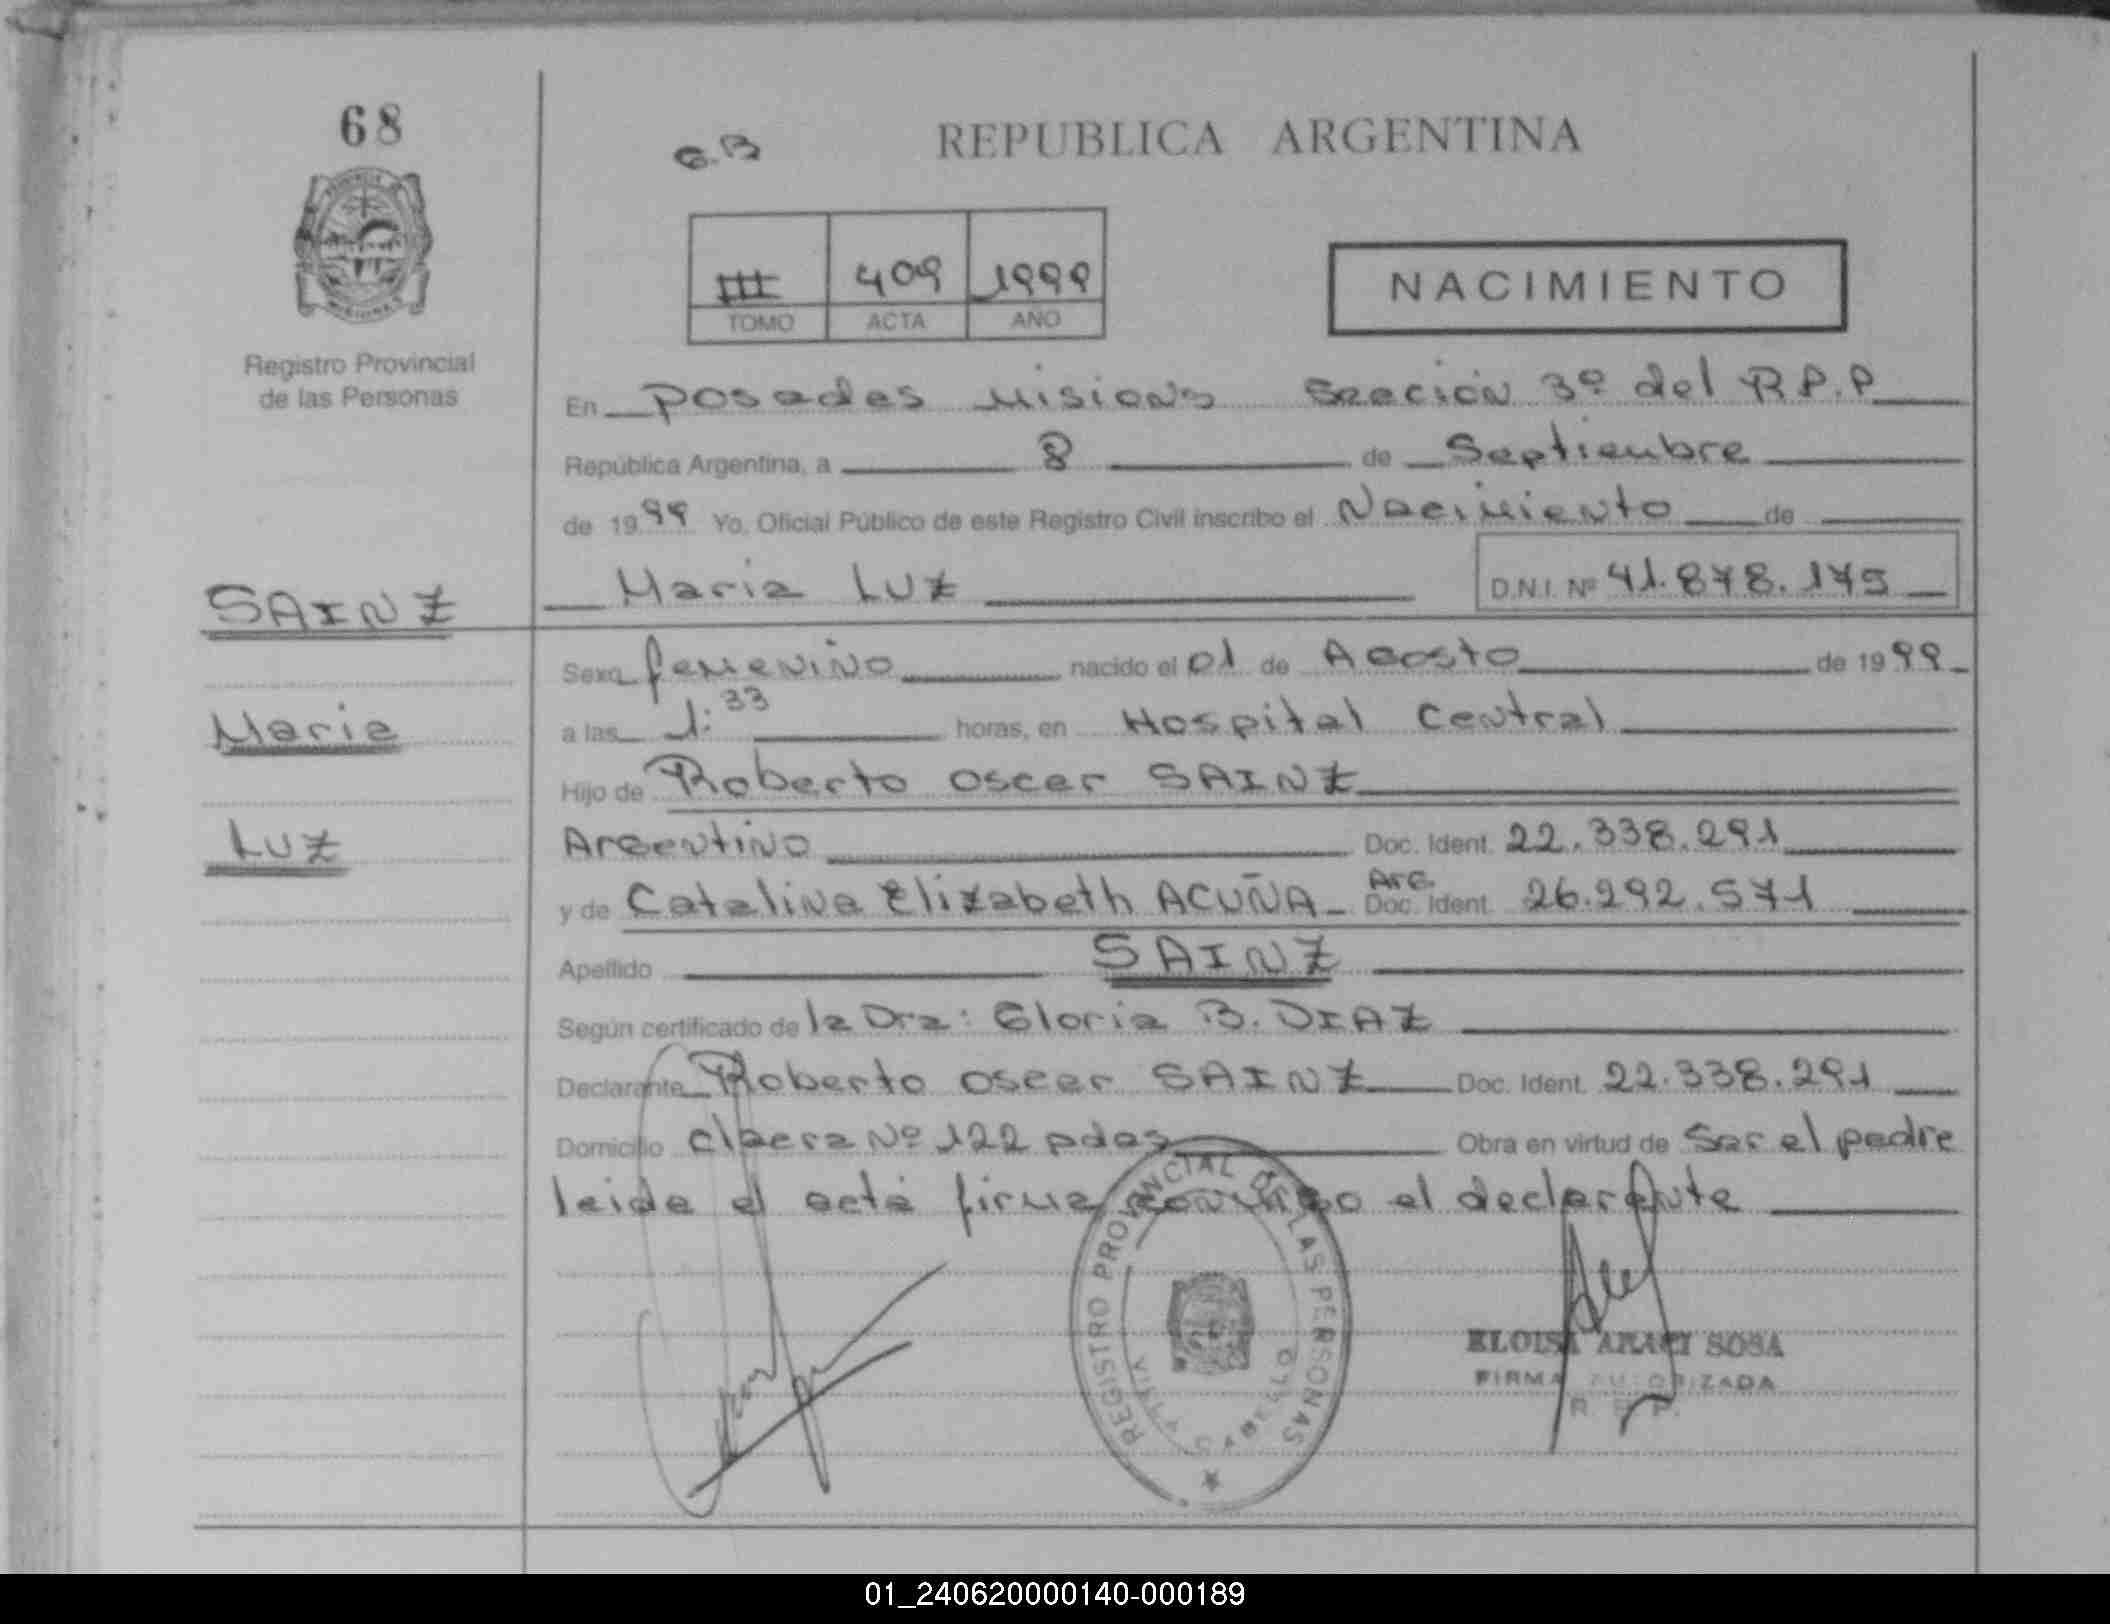 68
G.B
REPUBLICA ARGENTINA
III 409 1999
TOMO ACTA AÑO
NACIMIENTO
Registro Provincial
de las Personas
En Posadas Misions Sección 3º del R.P.P
República Argentina, a 8 de Septiembre
de 1999 Yo, Oficial Público de este Registro Civil inscribo el Nacimiento de
Maria Luz D.N.I. Nº 41.878.175
SAINZ
Maria
Luz
Sexo femenino nacido el 01 de Agosto de 1999
a las 1:33 horas, en Hospital Central
Hijo de Roberto Oscar SAINZ
Argentino Doc. Ident. 22.338.291
y de Catalina Elizabeth ACUÑA Arg. Doc. Ident. 26.292.571
Apellido SAINZ
Según certificado de la Dra: Gloria B. DIAZ
Declarante Roberto Oscar SAINZ Doc. Ident. 22.338.291
Domicilio Nº 122 pdas Obra en virtud de Ser el padre
leida el acta firma conmigo el declarante
REGISTRO PROVINCIAL DE LAS PERSONAS
VILLA CABELLO
ELOISA ARACI SOSA
FIRMA AUTORIZADA
R. P. P.
01_240620000140-000189